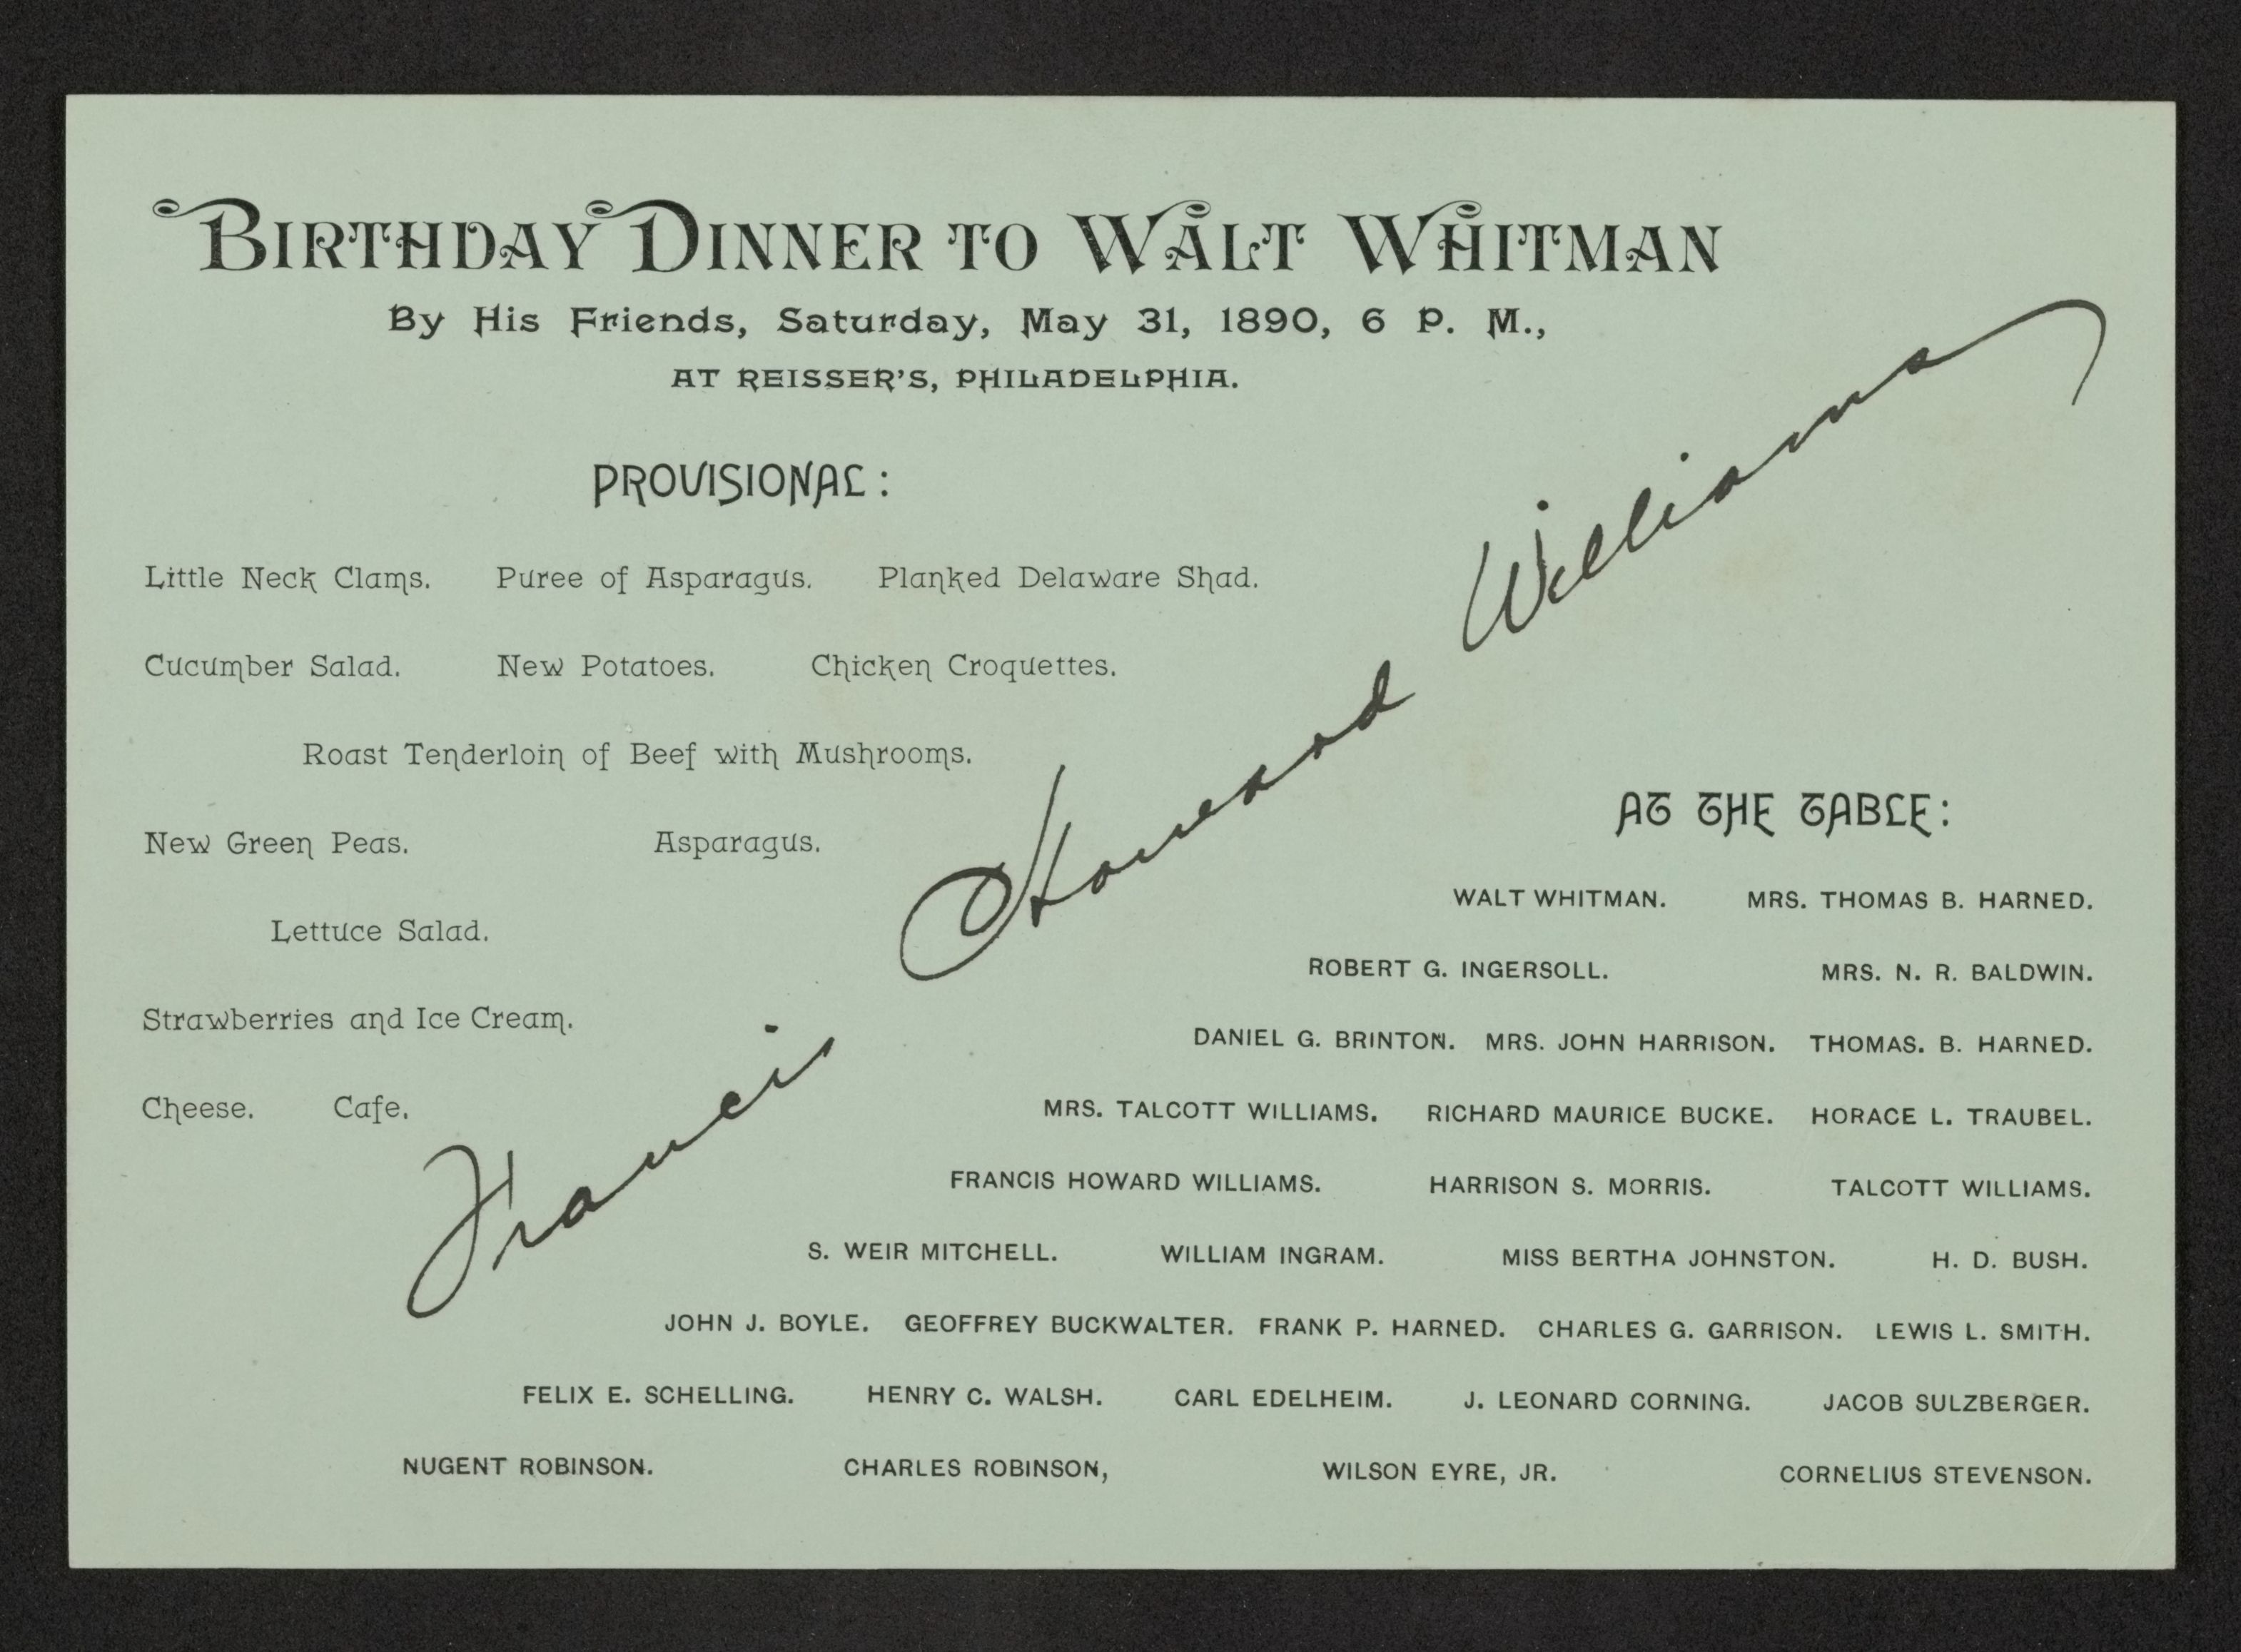 BIRTHDAY DINNER TO WALT WHITMAN
By His Friends, Saturday, May 31, 1890, 6 P. M.,
AT REISSER'S, PHILADELPHIA.
PROVISIONAL:
Little Neck Clams. Puree of Asparagus. Planked Delaware Shad.
Cucumber Salad. New Potatoes. Chicken Croquettes.
Roast Tenderloin of Beef with Mushrooms.
New Green Peas. Asparagus.
Lettuce Salad.
Strawberries and Ice Cream.
Cheese. Cafe.
Francis Howard Williams
AT THE TABLE:
WALT WHITMAN. MRS. THOMAS B. HARNED.
ROBERT G. INGERSOLL. MRS. N. R. BALDWIN.
DANIEL G. BRINTON. MRS. JOHN HARRISON. THOMAS. B. HARNED.
MRS. TALCOTT WILLIAMS. RICHARD MAURICE BUCKE. HORACE L. TRAUBEL.
FRANCIS HOWARD WILLIAMS. HARRISON S. MORRIS. TALCOTT WILLIAMS.
S. WEIR MITCHELL. WILLIAM INGRAM. MISS BERTHA JOHNSTON. H. D. BUSH.
JOHN J. BOYLE. GEOFFREY BUCKWALTER. FRANK P. HARNED. CHARLES G. GARRISON. LEWIS L. SMITH.
FELIX E. SCHELLING. HENRY C. WALSH. CARL EDELHEIM. J. LEONARD CORNING. JACOB SULZBERGER.
NUGENT ROBINSON. CHARLES ROBINSON, WILSON EYRE, JR. CORNELIUS STEVENSON.